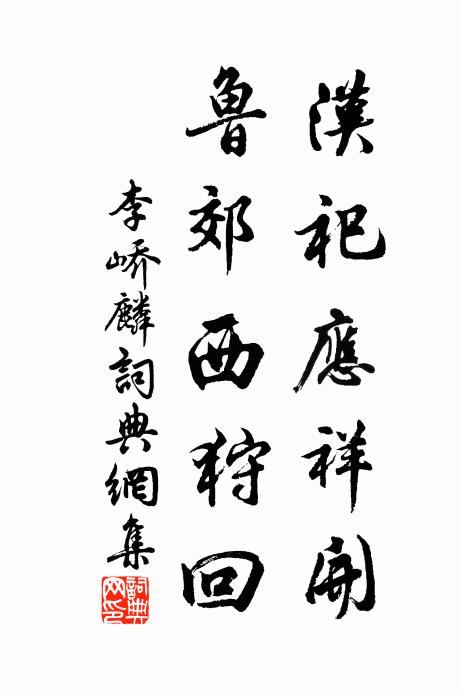 漢祀應祥開
魯郊西狩回
李嶠麟詞典網集
詞典網印